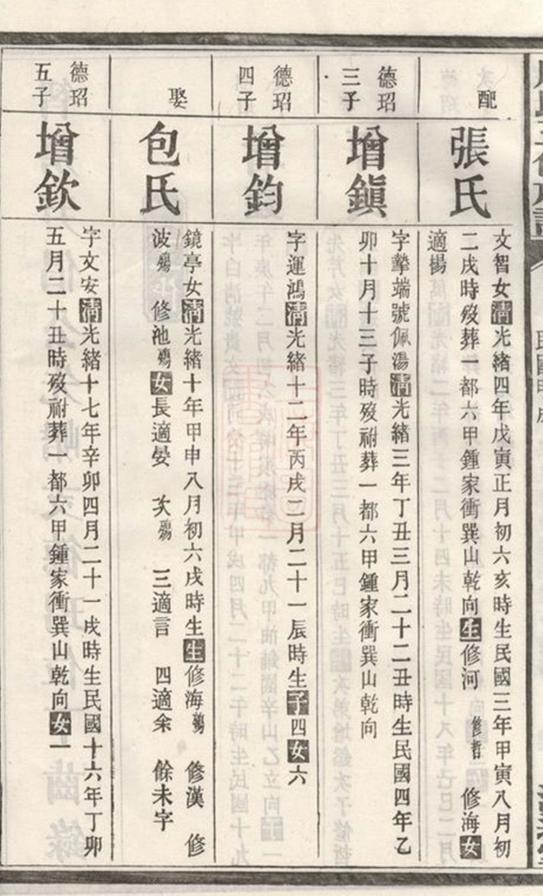 配
張氏
文智女清光緒四年戊寅正月初六亥時生民國三年甲寅八月初
二戌時歿葬一都六甲鍾家衝巽山乾向生修河 修哲 修海女一
適楊
德玿
三子
增鎮
字摯端號佩湯清光緒三年丁丑三月二十二丑時生民國四年乙
卯十月十三子時歿祔葬一都六甲鍾家衝巽山乾向
德玿
四子
增鈞
字運鴻清光緒十二年丙戌三月二十一辰時生子四女六
娶
包氏
鏡亭女清光緒十年甲申八月初六戌時生生修海殤 修漢 修
波殤 修池殤女長適晏 次殤 三適言 四適余 餘未字
德玿
五子
增欽
字文安清光緒十七年辛卯四月二十一戌時生民國十六年丁卯
五月二十丑時歿祔葬一都六甲鍾家衝巽山乾向女一